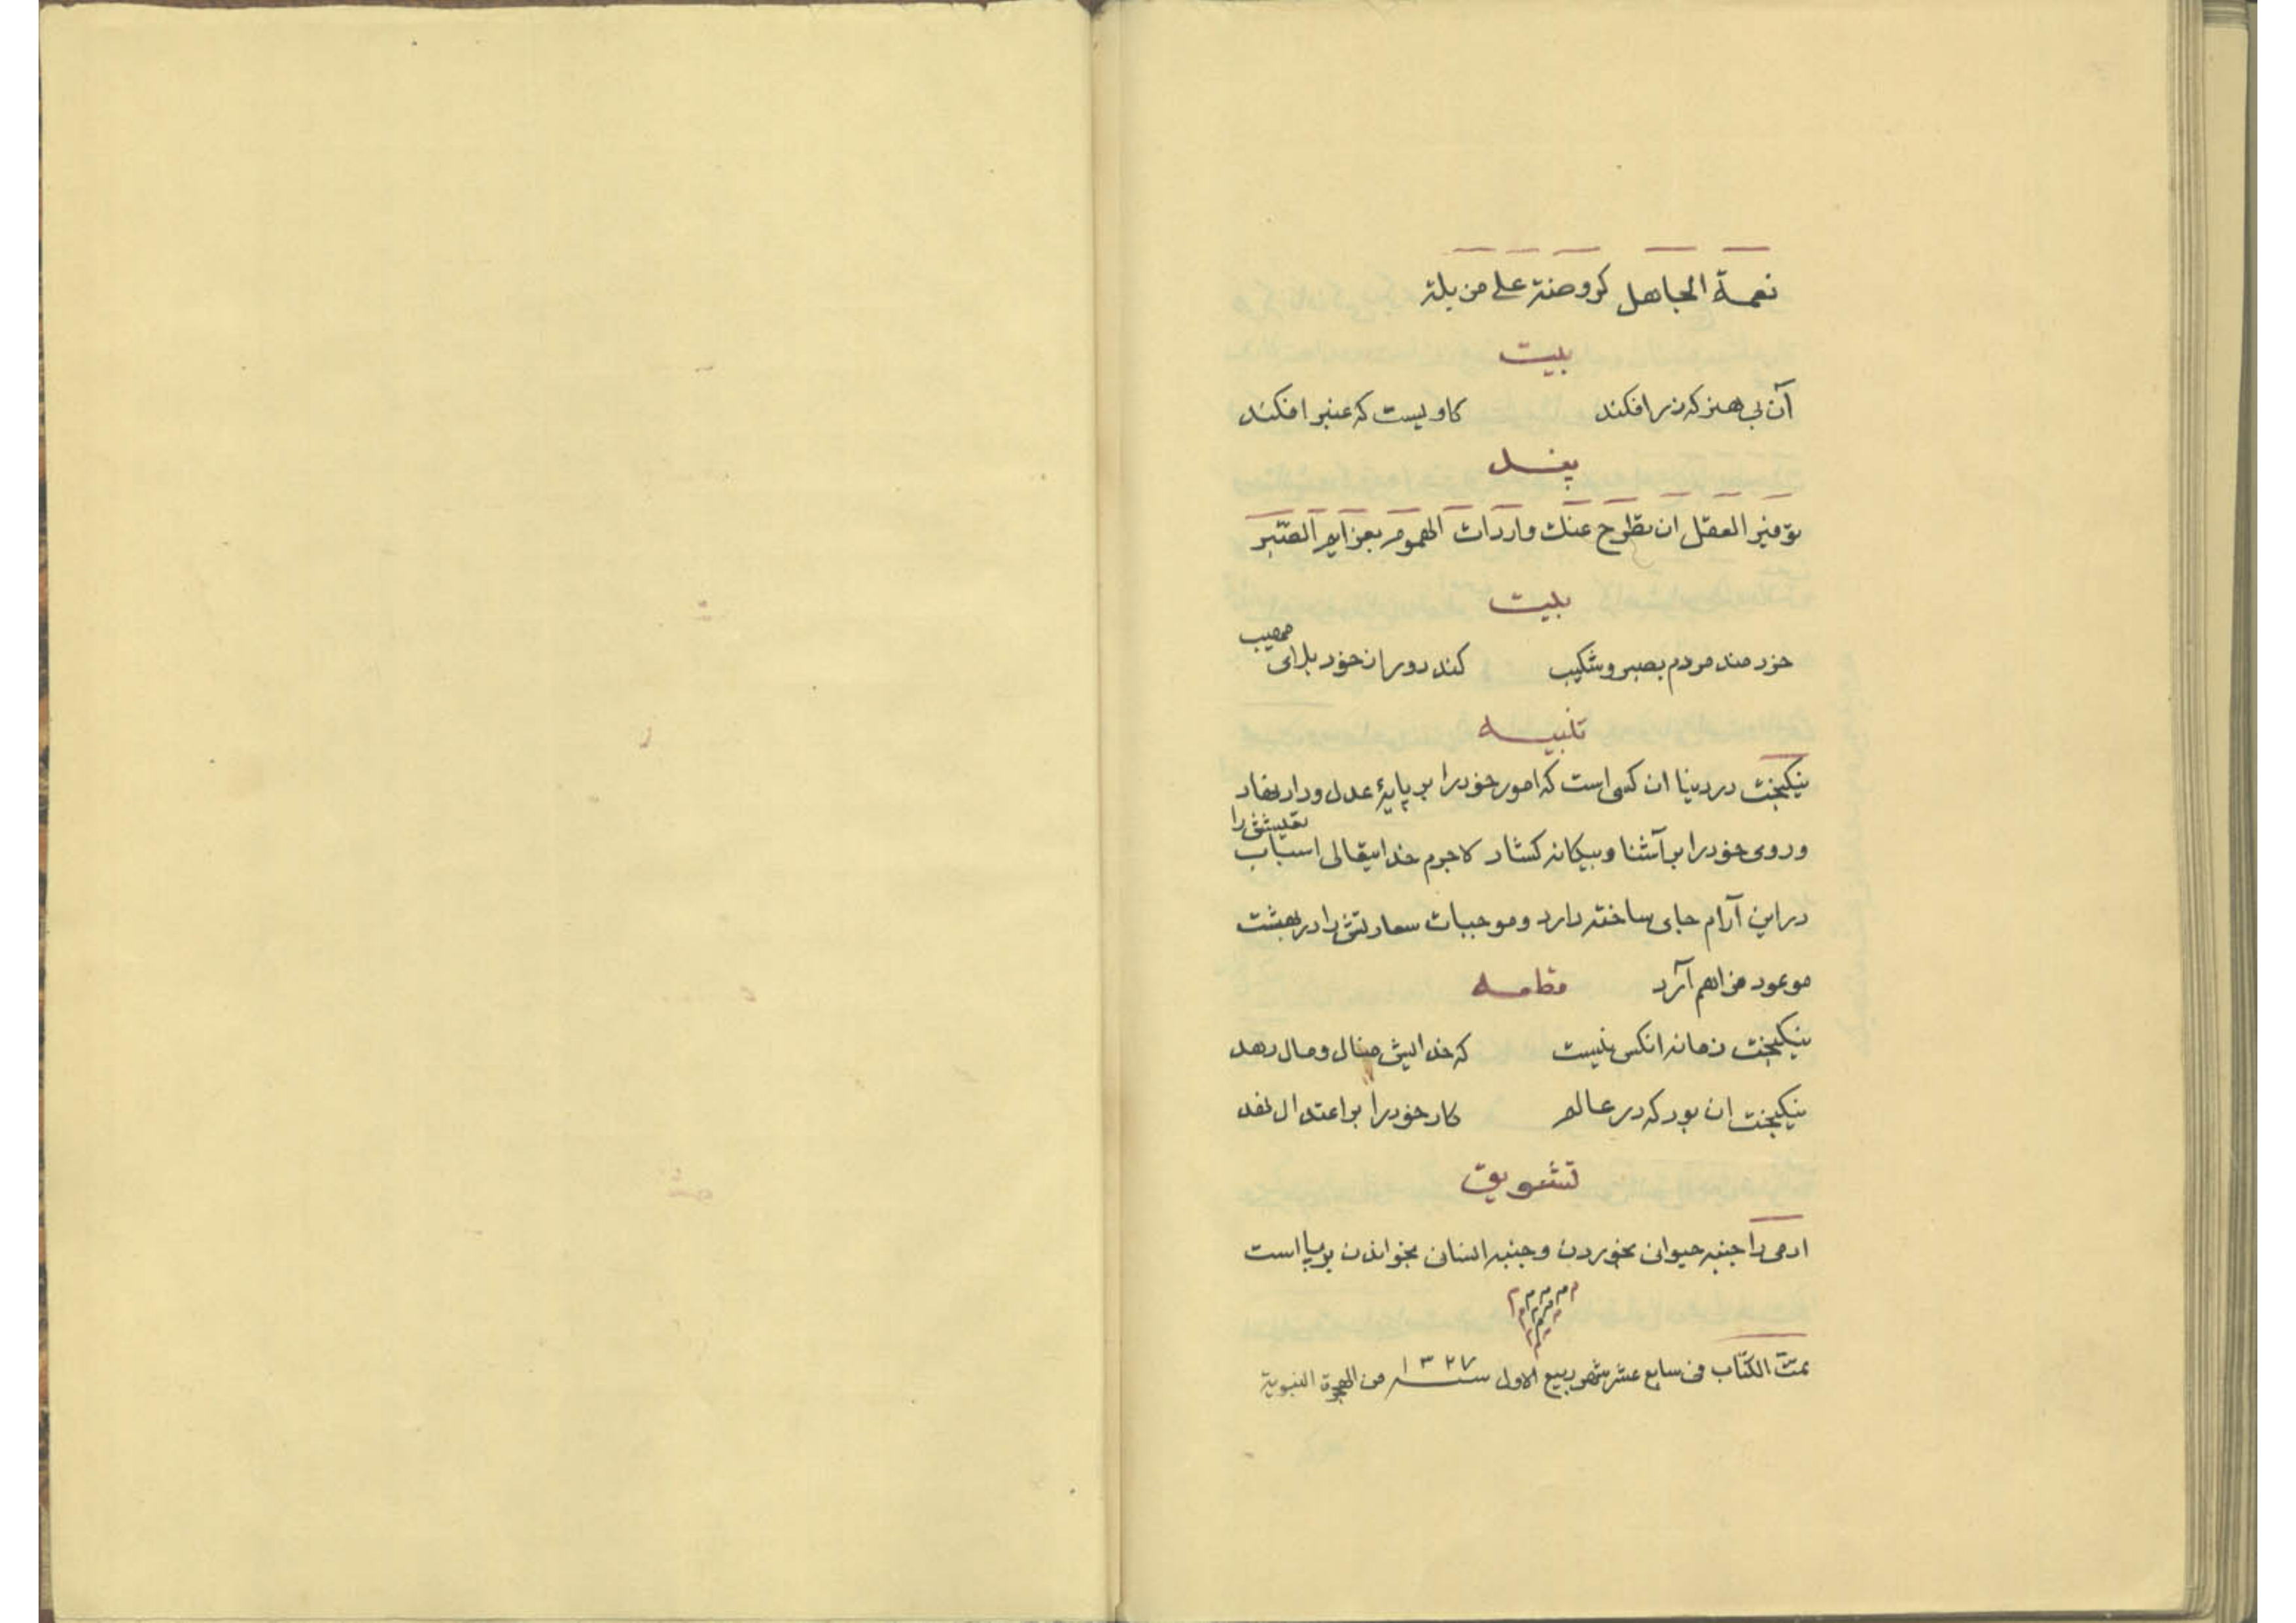 نعمة الجاهل كروضة على مزبلة
بیت
آن بی هنر که زر افکند کاویست که عنبر افکند
پند
توفير العقل ان تطرح عنك واردات الهموم بعزايم الصبر
بیت
خردمند مردم بصبر و شکیب کند دور از خود بلای مصیب
تنبیه
نیکبخت در دنیا ان کسی است که امور خود را بر پایهٔ عدل و داد نهاد
و روی خود را بر آشنا و بیکانه کشاد لاجرم خدایتعالی اسباب تعیشش را
در این آرام جای ساخته دارد و موجبات سعادتش را در بهشت
موعود فراهم آرد قطعه
نیکبخت زمانه انکس نیست که خدایش منال و مال دهد
نیکبخت ان بود که در عالم کار خود را بر اعتدال نهد
تشویق
ادمی را جنبه حیوانی بخوردن و جنبه انسانی بخواندن بر پا است
تمت الكتاب فی سابع عشر شهر ربيع الاول سنه ١٣٢٧ من الهجرة النبوية